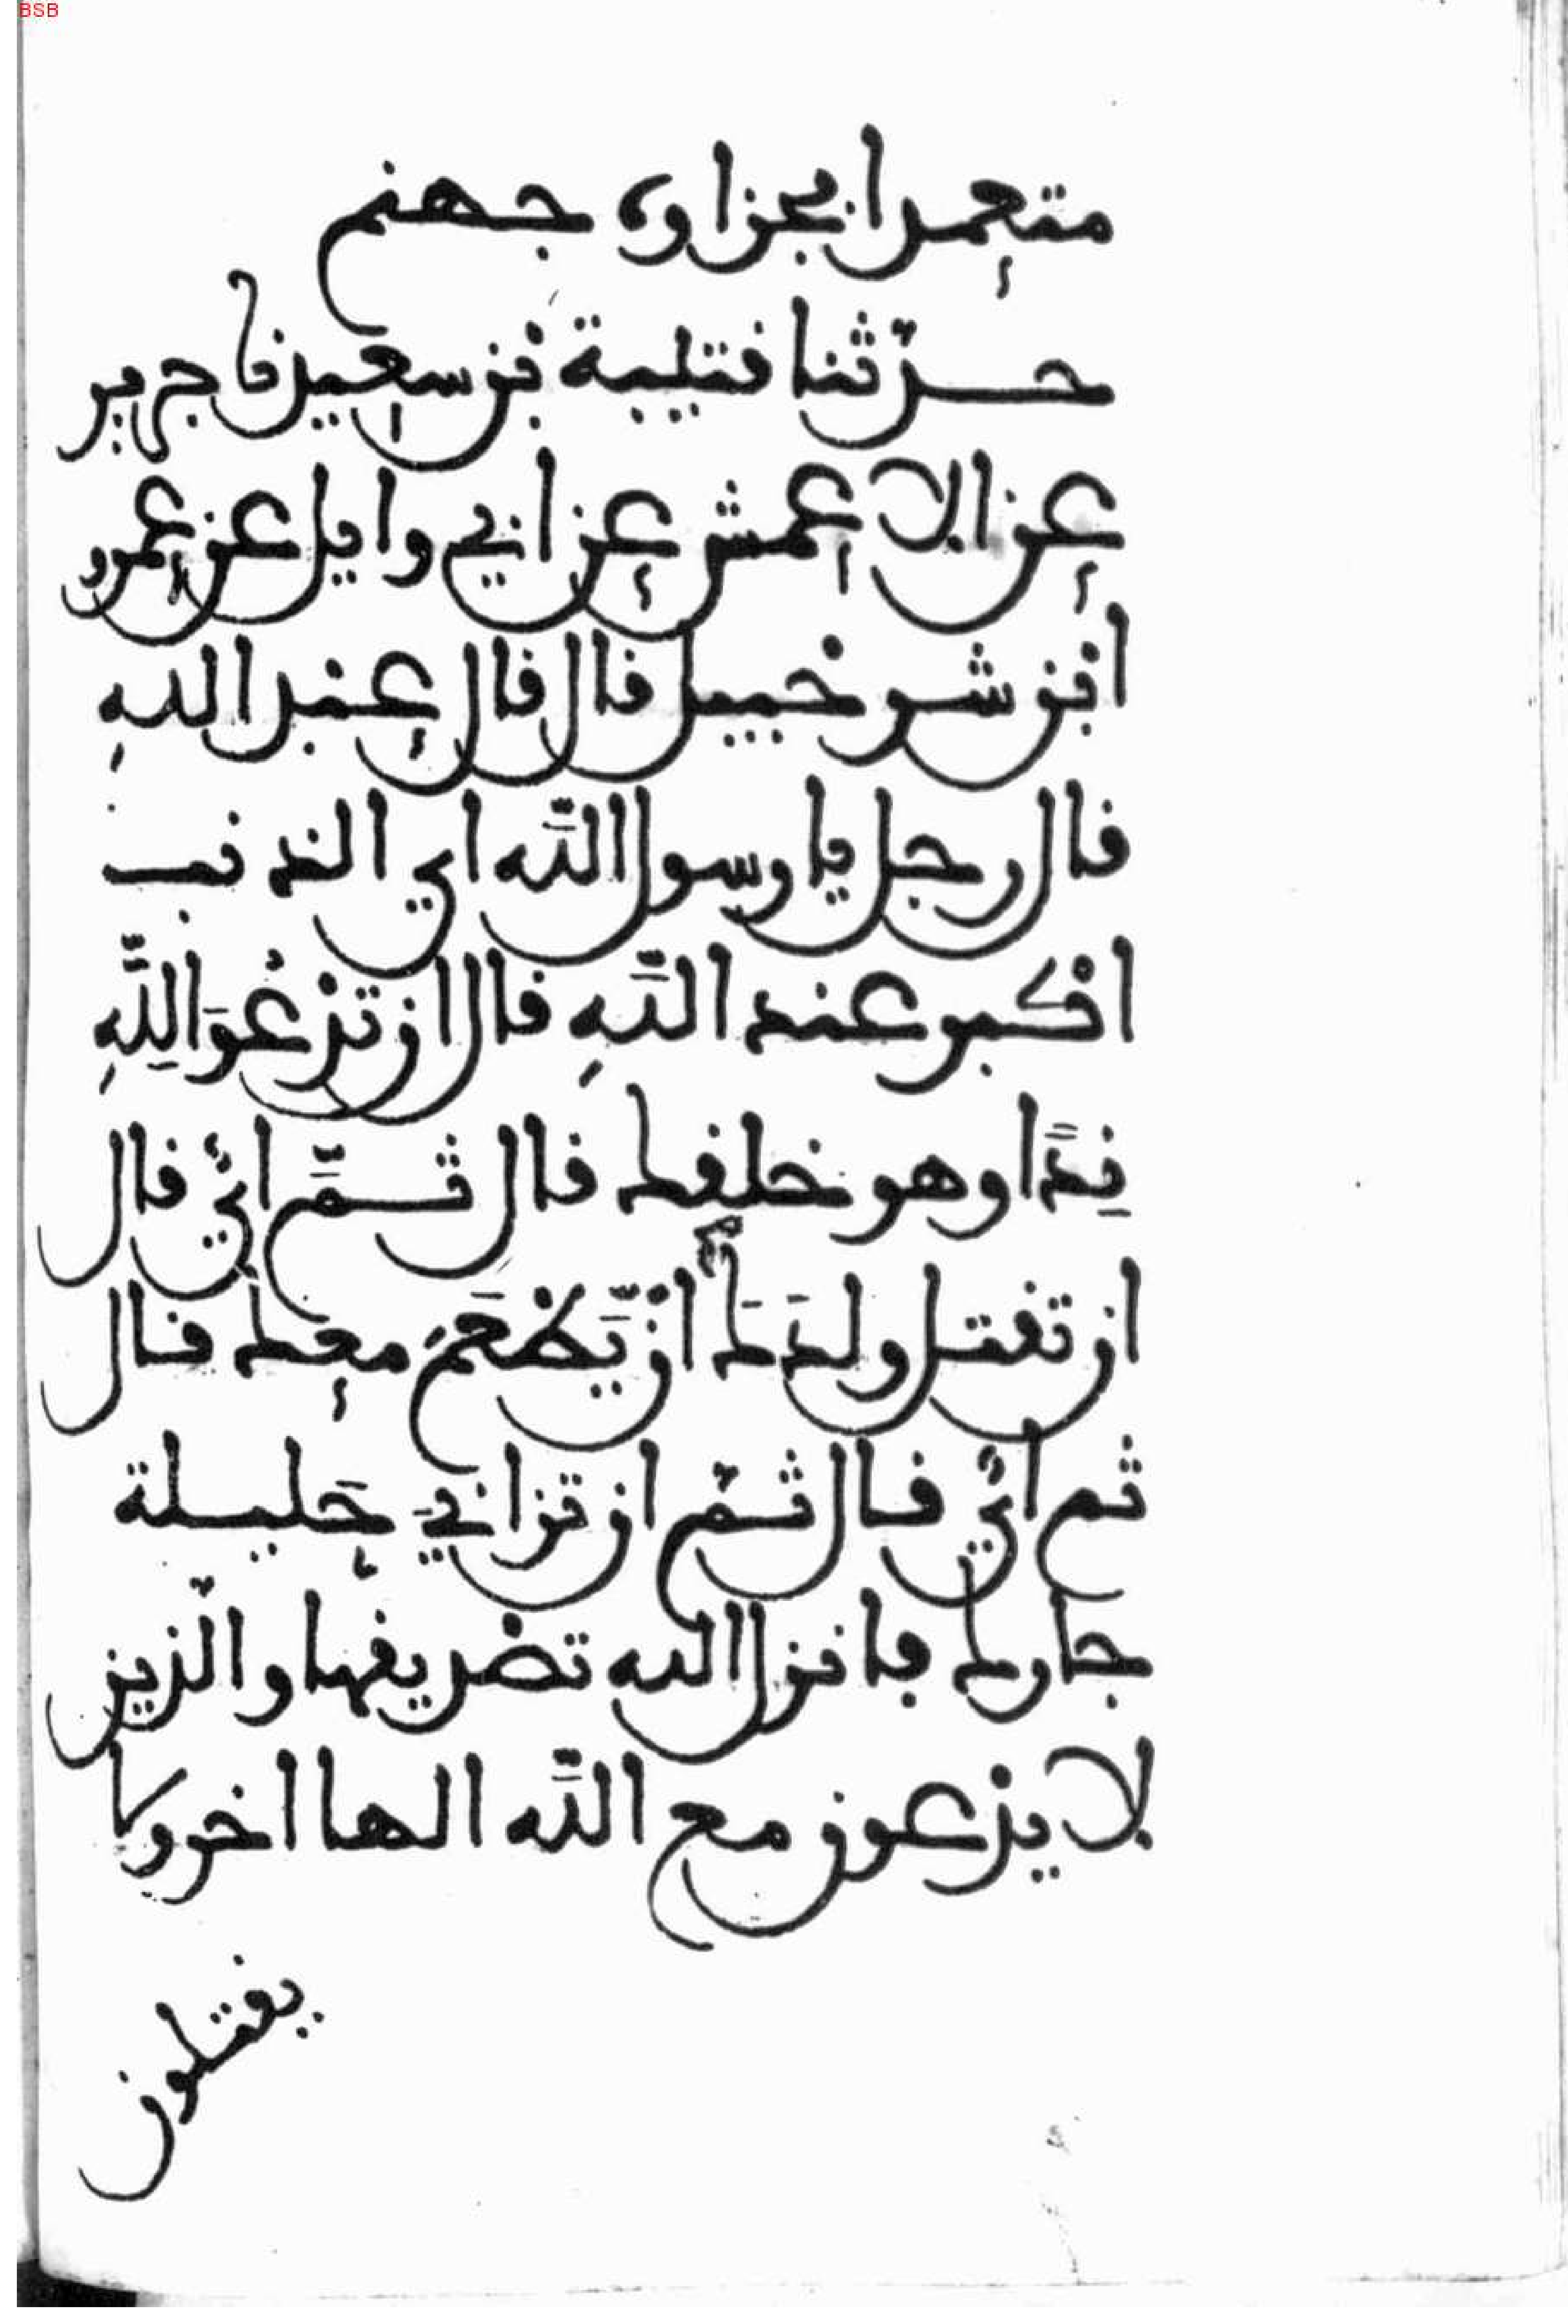 BSB
متعمدا فجزاوه جهنم
حدثنا قتيبة بن سعيد نا جرير
عن الاعمش عن ابي وايل عن عمرو
ابن شرحبيل قال قال عبد الله
قال رجل يا رسول اللَّه اي الذنب
اكبر عند اللَّهِ قال ان تدْعُوَ لِلَّهِ
نِدًّا وهو خلقك قال ثمَّ اي قال
ان تقتل ولدَكَ أن يَّطْعَمَ معك قال
ثم اي قال ثمّ ان تزاني حَليلة
جارك فانزل الله تصديقها والّذين
لا يدعون مع اللَّه الها اخر ولا
يقتلون